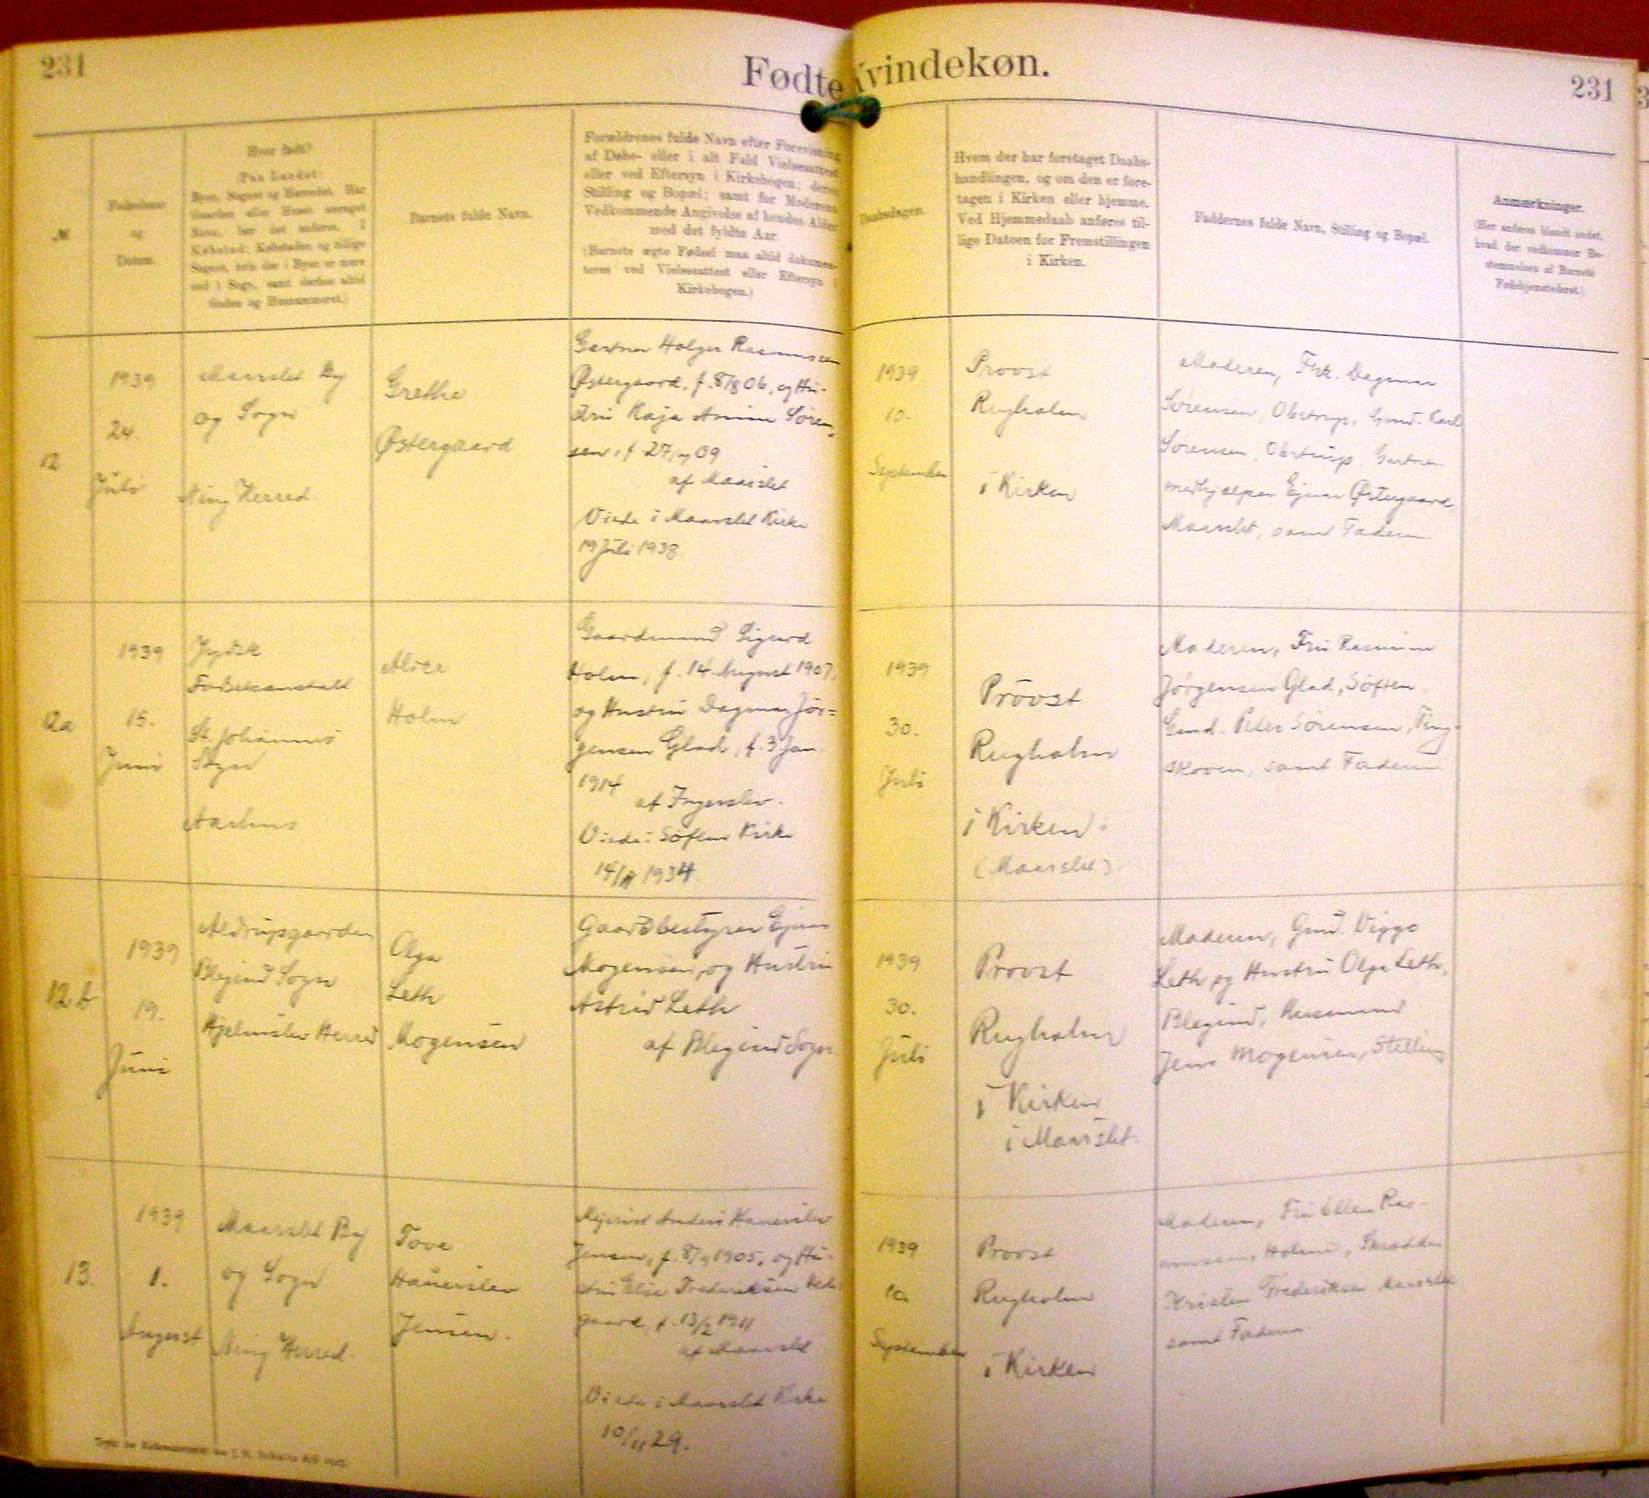 231
Fødte Kvindekøn.
231
№
Fødselsaar
og
Datum.
Hvor født?
(Paa Landet:
Byen, Sognet og Herredet. Har
Gaarden eller Huset særeget
Navn, bør det anføres. I
Købstad: Købstaden og tillige
Sognet, hvis der i Byen er mere
end 1 Sogn, samt derhos altid
Gaden og Husnummeret.)
Barnets fulde Navn.
Forældrenes fulde Navn efter Forevisning
af Døbe- eller i alt Fald Vielsesattest
eller ved Eftersyn i Kirkebogen; deres
Stilling og Bopæl; samt for Moderens
Vedkommende Angivelse af hendes Alder
med det fyldte Aar.
(Barnets ægte Fødsel maa altid dokumen-
teres ved Vielsesattest eller Eftersyn i
Kirkebogen.)
Daabsdagen.
Hvem der har foretaget Daabs-
handlingen, og om den er fore-
tagen i Kirken eller hjemme.
Ved Hjemmedaab anføres til-
lige Datoen for Fremstillingen
i Kirken.
Faddernes fulde Navn, Stilling og Bopæl.
Anmærkninger.
(Her anføres blandt andet,
hvad der vedkommer Be-
stemmelsen af Barnets
Fødehjemstedsret.)
12
1939
24.
Juli
Maarslet By
og Sogn
Ning Herred.
Grethe
Østergaard
Gartner Holger Rasmussen
Østergaard, f. 8/8 06, og Hu-
stru Kaja Søren-
sen, f 27/ 09
af Maarslet
Viede i Maarslet Kirke
19 Juli 1938.
1939
10.
September
Provst
Rugholm
i Kirken
Moderen, Frk. Dagmar
Sørensen, Obstrup, Gmd. Karl
Sørensen, Obstrup, Gartner-
medhjælper Ejnar Østergaard
Maarslet, samt Faderen.
12a
1939
15.
Juni
Jydsk
Fødselsanstalt
St. Johannes
Sogn
Aarhus
Alice
Holm
Gaardmand Sigurd
Holm, f. 14 August 1907,
og Hustru Dagmar Jør=
gensen Glad, f. 3 Jan
1914
af Ingerslev.
Viede i Søften Kirke
14/ 1934.
1939
30.
Juli
Provst
Rugholm
i Kirken
(Maarslet)
Moderen, Fru Rasmine
Jørgensen Glad, Søften.
Gmd. Peter Sørensen, Ting-
skoven, samt Faderen
12.b
1939
19.
Juni
Aldrupgaarden
Blegind Sogn
Hjelmslev Herred
Olga
Leth
Mogensen
Gaardbestyrer Ejnar
Mogensen, og Hustru
Astrid Leth
af Blegind Sogn
1939
30.
Juli
Provst
Rugholm
i Kirken
i Maarslet.
Moderen, Gmd. Viggo
Leth og Hustru Olga Leth,
Blegind, Husmand
Jens Mogensen, Stilling
13.
1939
1.
August
Maarslet By
og Sogn
Ning Herred.
Tove
Hauerslev
Jensen.
Mejerist Anders Hauerslev
Jensen, f. 8/9 1905, og Hu-
stru Elise Frederiksen
gaard, f. 13/2 1911
af Maarslet
Viede i Maarslet Kirke
10/11 29.
1939
10
September
Provst
Rugholm
i Kirken
Moderen, Fru Ellen Ras-
mussen, Holme, Skrædder
Kristen Frederiksen Maarslet
samt Faderen.